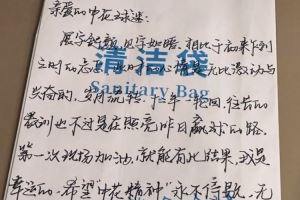 亲爱的中花球迷:
展字舒颜,见字如晤。相比于初来乍到
之时的忐忑,此刻的心情是无比激动与
兴奋的,岁月流转,十二年一轮回,往昔的
教训也不过是在照亮昨日赢球的路。
第一次现场加油,就能有此结果,我是
幸运的。希望“中花精神”永不停息,无
清洁袋
Sanitary Bag